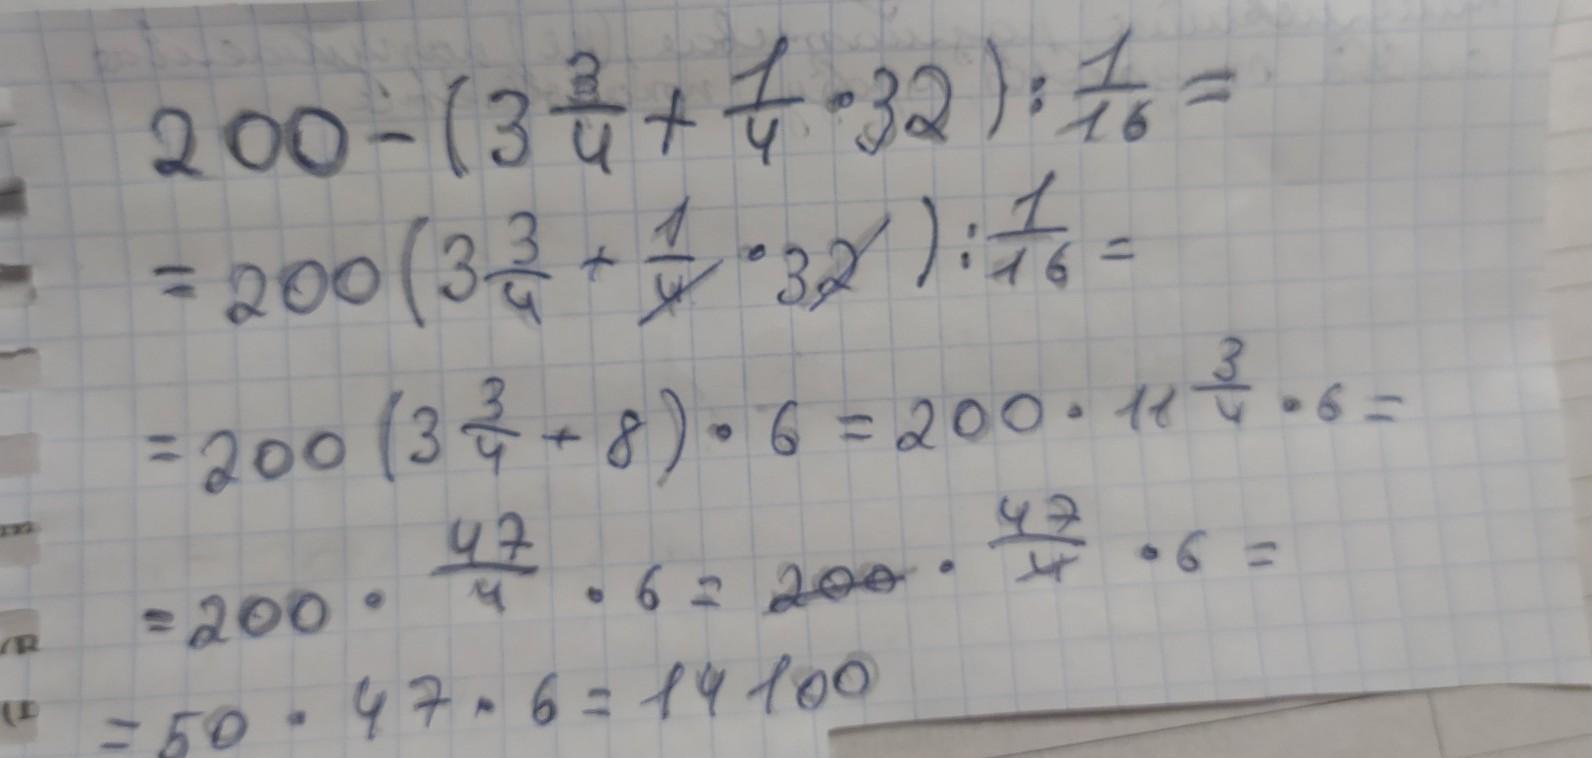 200 - (3 3/4 + 1/4 · 32) : 1/16 =
= 200 (3 3/4 + 1/4 · 32) : 1/16 =
= 200 (3 3/4 + 8) · 6 = 200 · 11 3/4 · 6 =
= 200 · 47/4 · 6 = 200 · 47/4 · 6 =
= 50 · 47 · 6 = 14 100